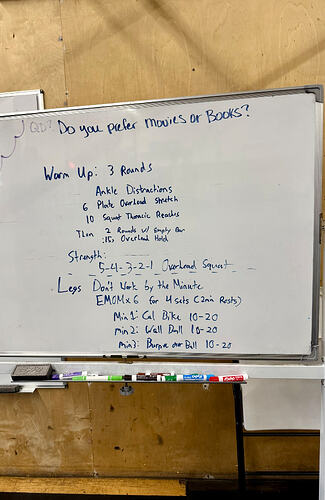 QOD? Do you prefer Movies or Books?
Warm Up: 3 Rounds
Ankle Distractions
6 Plate Overhead Stretch
10 Squat Thoracic Reaches
Then 2 Rounds w/ Empty Bar
:15s Overhead Hold
Strength:
5-4-3-2-1 Overhead Squat
Legs Don't Work by the Minute
EMOM x 6 for 4 sets (2min Rests)
Min 1: Cal Bike 10-20
min 2: Wall Ball 10-20
min 3: Burpee over Ball 10-20